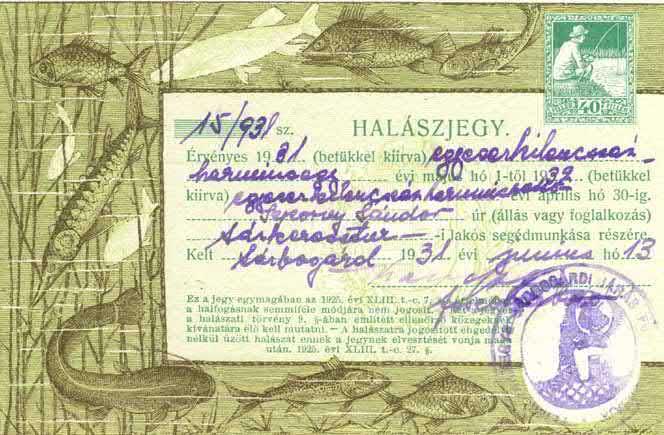 15/931 sz. HALÁSZJEGY.
Érvényes 1931 (betükkel kiirva) egyezerkilencszáz-
harmincegy évi május hó 1-től 1932 (betükkel
kiirva) egyezerkilencszázharminckettő évi április hó 30-ig.
Sándor úr (állás vagy foglalkozás)
Sárkeresztur -i lakós segédmunkása részére.
Kelt Sárbogárd 1931 évi junius hó 13
Ez a jegy egymagában az 1925. évi XLIII. t.-c. 7. értelmében
a halfogásnak semmiféle módjára nem jogosit.
a halászati törvény 9. §-ában emlitett ellenőrző közegek
kivánatára elő kell mutatni. — A halászatra jogositott engedélye
nélkül üzött halászat ennek a jegynek elvesztését vonja maga
után. 1925. évi XLIII. t.-c. 27. §.
40